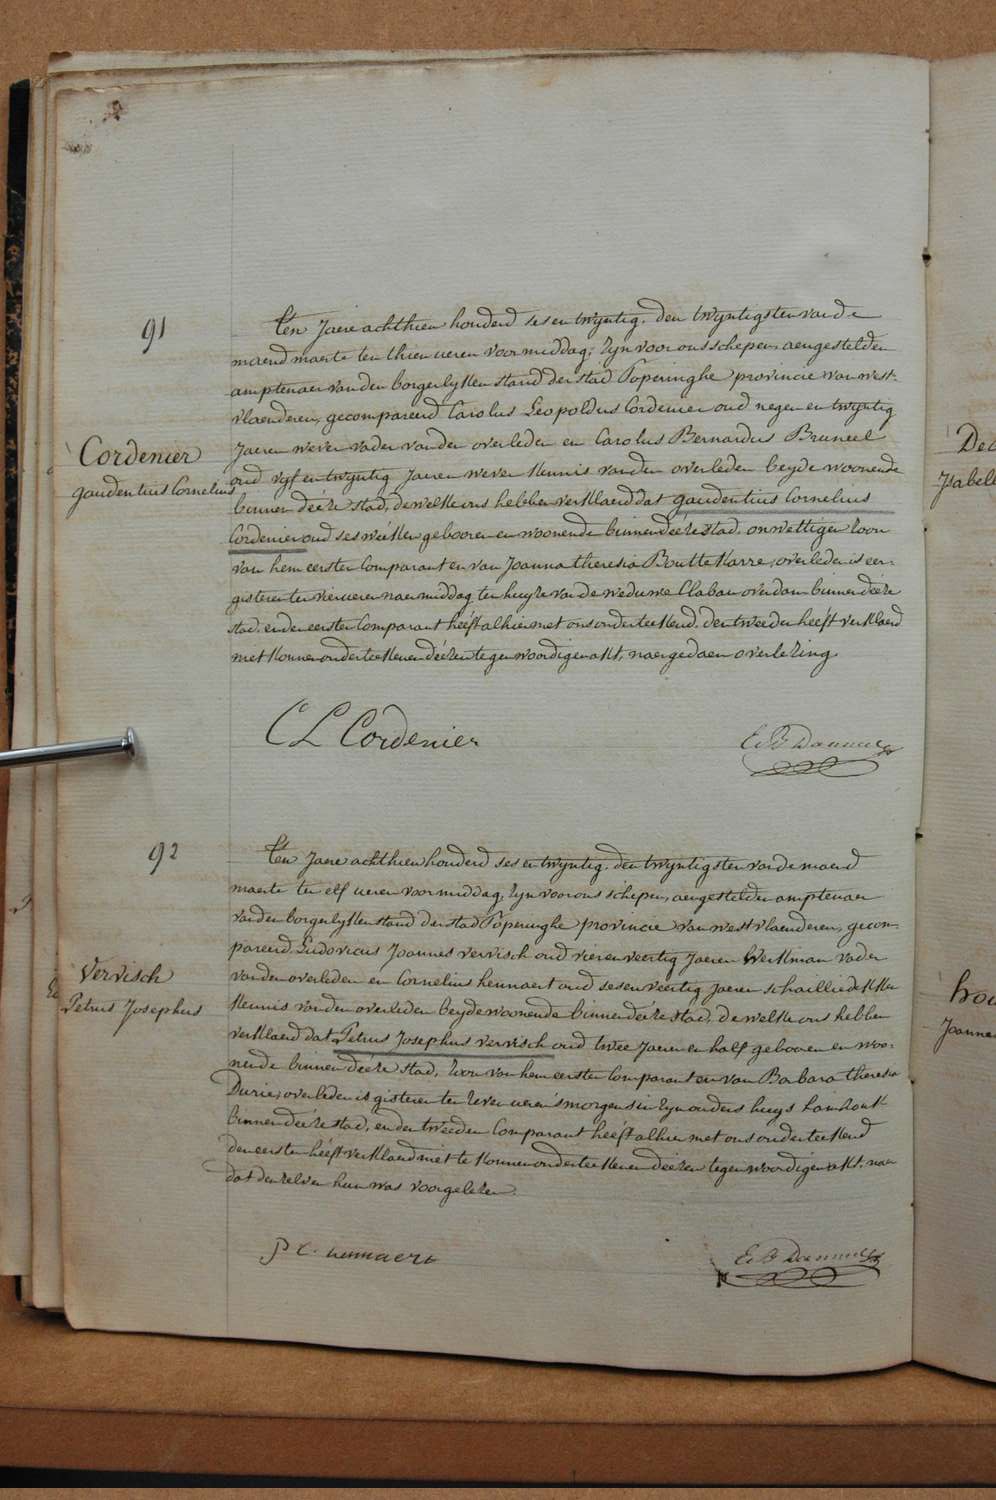 91
Cordenier
gaudentius Cornelius
Ten Jaere achthien honderd ses en twyntig, den twyntigsten van de
maend maerte ten thien ueren voormiddag, zyn voor ons schepen, aengestelden
amptenaer van den borgerlyken stand der stad Poperinghe provincie van west-
vlaenderen, gecompareerd Carolus Leopoldus Cordenier oud negen en twyntig
Jaeren wever vader van den overleden en Carolus Bernardus Bruneel
oud vyf en twyntig Jaeren wever kennis van den overleden beyde woonende
binnen deéze stad, de welke ons hebben verklaerd dat gaudentius Cornelius
Cordenier oud ses wéeken gebooren en woonende binnen deéze stad, onwettigen zoon
van hem eersten Comparant en van Joanna theresia Bouttekarre, overleden is eer-
gisteren ten vier ueren naermiddag ten huyze van de weduwe Clabau overdam binnen deéze
stad, en den eersten Comparant heéft alhier met ons onderteekend, den tweeden heéft verklaerd
niet konnen onderteekenen deézen tegenwoordigen akt, naer gedaen overlezing
C L Cordenier
92
Vervisch
Petrus Josephus
Ten Jaere achthien honderd ses en twyntig, den twyntigsten van de maend
maerte ten elf ueren voormiddag, zyn voor ons schepen, aengestelden amptenaer
van den borgerlyken stand der stad Poperinghe provincie van west vlaenderen, gecom-
pareerd Ludovicus Joannes vervisch oud vier en veertig Jaeren Werkman vader
van den overleden en Cornelius hennaert oud ses en veertig Jaeren schailliedekker
kennis van den overleden beyde woonende binnen deéze stad, de welke ons hebben
verklaerd dat Petrus Josephus vervisch oud twee Jaeren en half gebooren en woo-
nende binnen deéze stad, zoon van hem eersten Comparant en van Barbara theresia
Durie, overleden is gisteren ten zeven ueren s'morgens in zyn ouders huys
binnen deéze stad, en den tweeden Comparant heéft alhier met ons onderteekend
den eersten héeft verklaerd niet te konnen onderteekenen deézen tegenwoordigen akt, naer
dat den zelven hun was voorgelezen.
P C hennaert